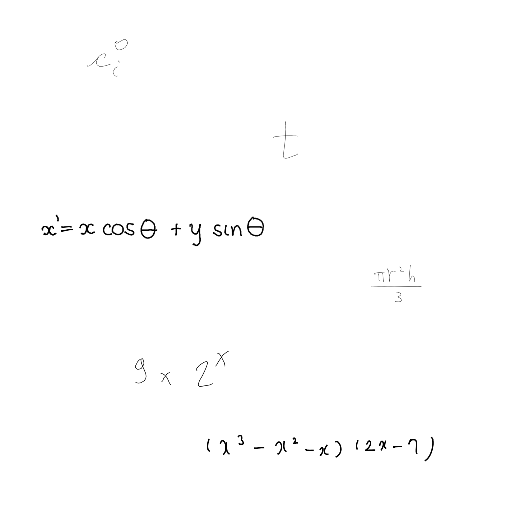 c_i^0
t
x' = x cosθ + y sinθ
πr²h/3
9 × 2^x
(x³ − x² − x)(2x − 7)